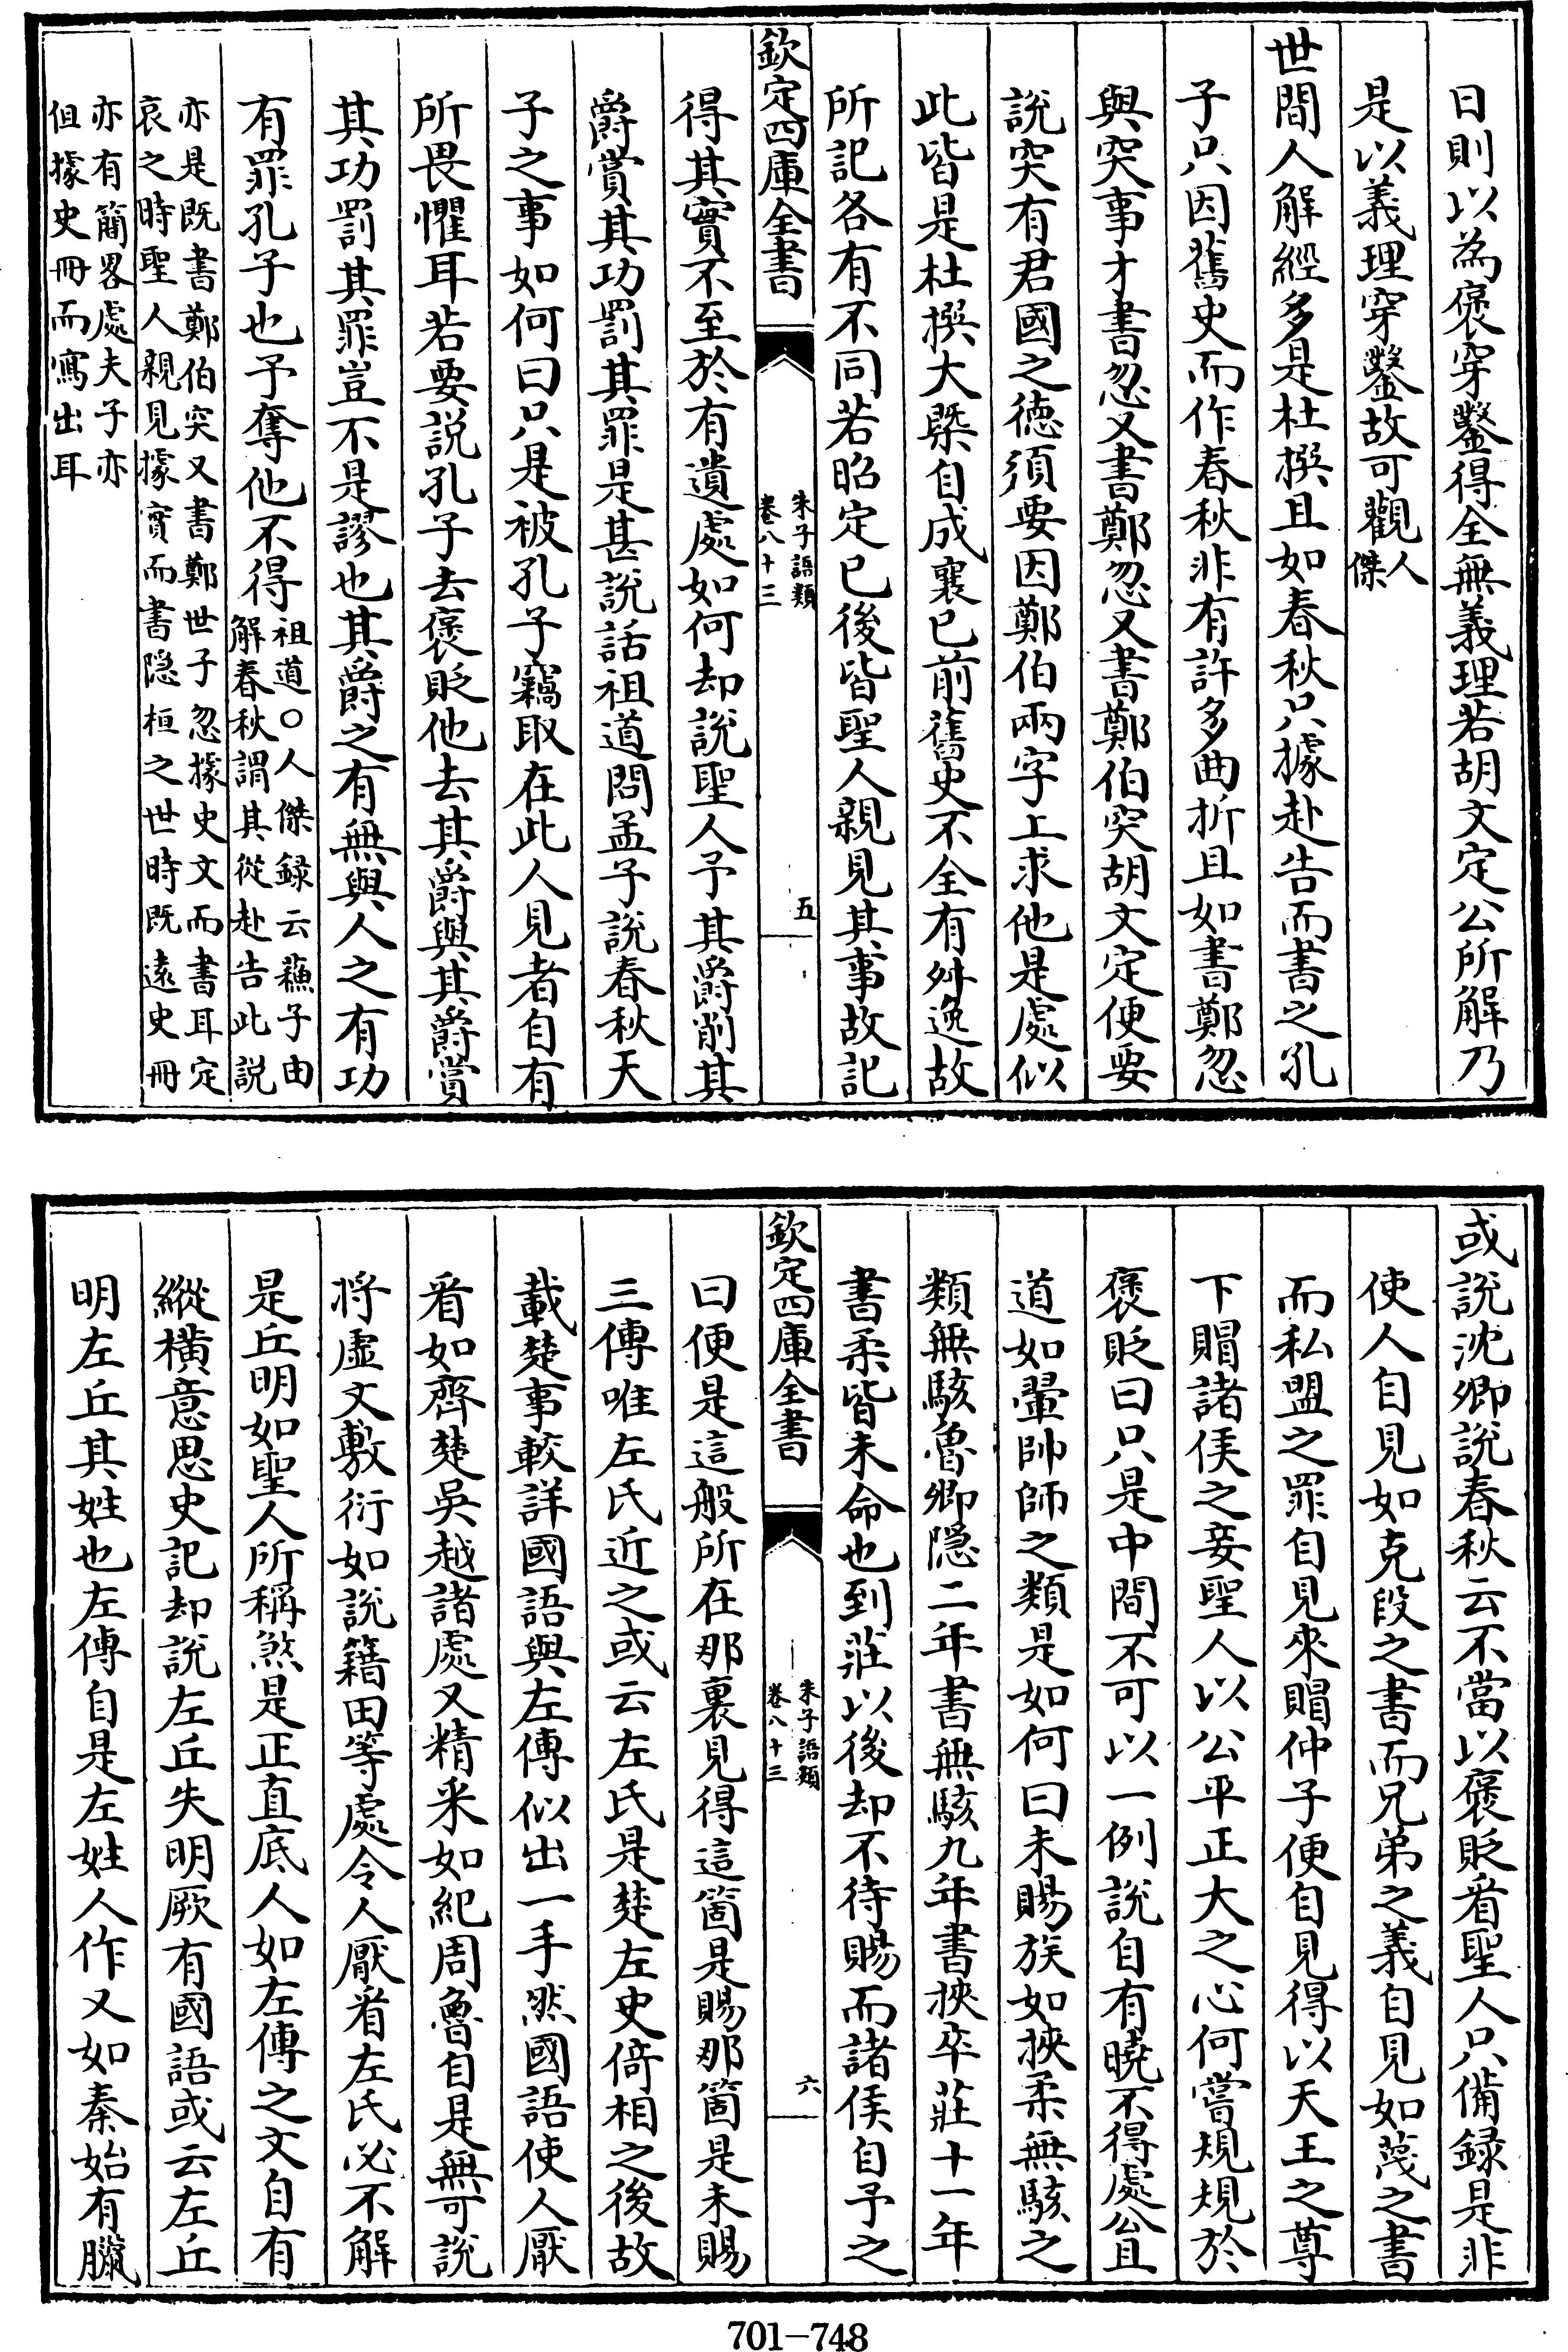 日則以為褒穿鑿得全無義理若胡文定公所解乃
是以義理穿鑿故可觀人
傑
世間人解經多是杜撰且如春秋只據赴告而書之孔
子只因舊史而作春秋非有許多曲折且如書鄭忽
與突事才書忽又書鄭忽又書鄭伯突胡文定便要
說突有君國之德須要因鄭伯兩字上求他是處似
此皆是杜撰大槩自成襄已前舊史不全有舛逸故
所記各有不同若昭定已後皆聖人親見其事故記
欽定四庫全書
朱子語類
卷八十三
五
得其實不至於有遺處如何却說聖人予其爵削其
爵賞其功罰其罪是甚說話祖道問孟子說春秋天
子之事如何曰只是被孔子竊取在此人見者自有
所畏懼耳若要說孔子去褒貶他去其爵與其爵賞
其功罰其罪豈不是謬也其爵之有無與人之有功
有罪孔子也予奪他不得祖道○人傑録云蘓子由
解春秋謂其從赴告此說
亦是既書鄭伯突又書鄭世子忽據史文而書耳定
哀之時聖人親見據實而書隐桓之世時既遠史冊
亦有簡畧處夫子亦
但據史冊而寫出耳
或說沈卿說春秋云不當以褒貶看聖人只備録是非
使人自見如克段之書而兄弟之義自見如蔑之書
而私盟之罪自見來賵仲子便自見得以天王之尊
下賵諸侯之妾聖人以公平正大之心何嘗規規於
褒貶曰只是中間不可以一例說自有曉不得處公且
道如翬帥師之類是如何曰未賜族如挾柔無駭之
類無駭魯卿隐二年書無駭九年書挾卒莊十一年
書柔皆未命也到莊以後却不待賜而諸侯自予之
欽定四庫全書
朱子語類
卷八十三
六
曰便是這般所在那裏見得這箇是賜那箇是未賜
三傳唯左氏近之或云左氏是楚左史倚相之後故
載楚事較詳國語與左傳似出一手然國語使人厭
看如齊楚吳越諸處又精采如紀周魯自是無可說
將虛文敷衍如說籍田等處令人厭看左氏必不解
是丘明如聖人所稱煞是正直底人如左傳之文自有
縱橫意思史記却說左丘失明厥有國語或云左丘
明左丘其姓也左傳自是左姓人作又如秦始有臘
701-748